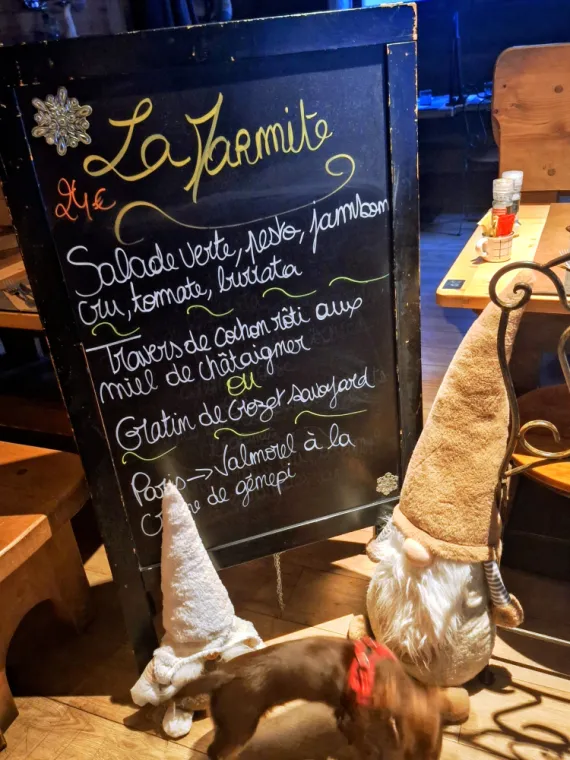 La Marmite
24€
Salade verte, pesto, jambon
cru, tomate, burrata
Travers de cochon rôti aux
miel de châtaigner
ou
Gratin de Crozet savoyard
Paris → Valmorel à la
de génepi